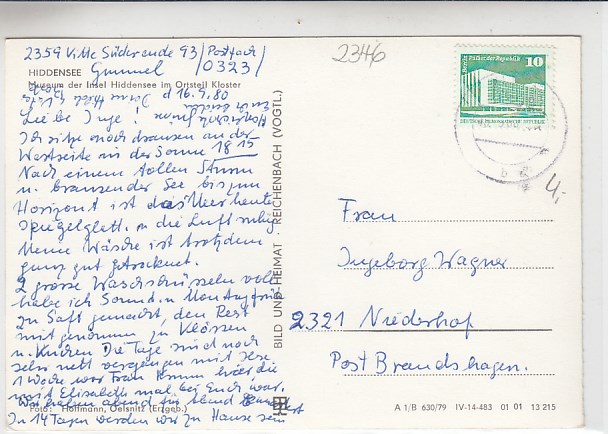 2359 Vitte Süderende 93/Postfach/
0323/
HIDDENSEE
Museum der Insel Hiddensee im Ortsteil Kloster
d 16.7.80
Liebe Inge!
Ich sitze noch draussen an der
Westseite in der Sonne 18 15
Nach einem tollen Sturm
u. brausender See bis zum
Horizont ist das Meer heute
spiegelglatt u die Luft ruhig
Meine Wäsche ist trotzdem
ganz gut getrocknet.
2 grosse Waschschüsseln voll
habe ich Sonnt. u Montagfrüh
zu Saft gemacht, den Rest
mitgenommen zu Klössen
u. Kuchen Die Tage sind noch
sehr nett vergangen mit
1 Woche war Frau hier die
mit Elisabeth mal bei Euch war.
Wir haben abend für abend
In 14 Tagen werden wir zu Hause sein
Foto: Hoffmann, Oelsnitz (Erzgeb.)
BILD UND HEIMAT · REICHENBACH (VOGTL.)
2346
Palast der Republik
10
DEUTSCHE DEMOKRATISCHE REPUBLIK
b
4,-
Frau
Ingeborg Wagner
2321 Niederhof
Post Brandshagen.
A 1/B 630/79 IV-14-483 01 01 13 215